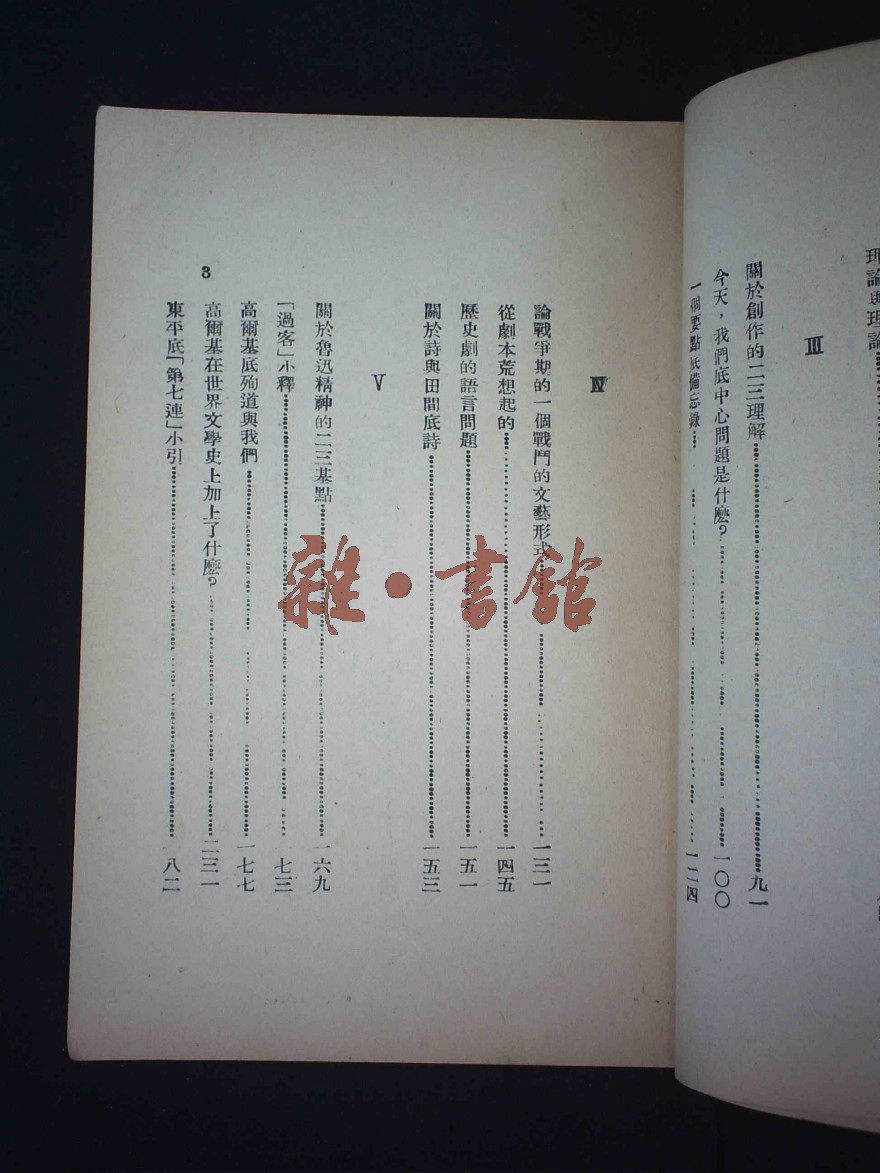 理論與理論
III
關於創作的二三理解……九一
今天，我們底中心問題是什麼？……一〇〇
一個要點底備忘錄……一二四
IV
論戰爭期的一個戰鬥的文藝形式……一三一
從劇本荒想起的……一四五
歷史劇的語言問題……一五一
關於詩與田間底詩……一五三
V
關於魯迅精神的二三基點……一六九
「過客」小釋……七三
高爾基底殉道與我們……一七七
高爾基在世界文學史上加上了什麼？……二三一
東平底「第七連」小引……八二
3
雜·書館